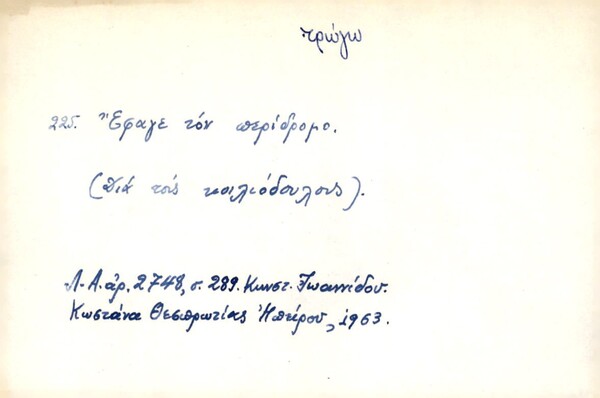 τρώγω
225. Ἔφαγε τόν περίδρομο.
(Διά τούς κοιλιόδουλους).
Λ.Α. ἀρ. 2748, σ. 289. Κωνστ. Ἰωαννίδου.
Κωστάνα Θεσπρωτίας Ἠπείρου, 1963.